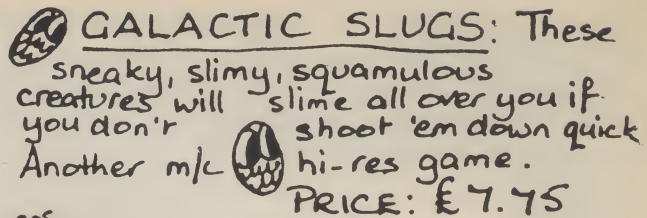 GALACTIC SLUGS: These
sneaky, slimy, squamulous
creatures will slime all over you if
you don'r shoot 'em down quick
Another m/c hi-res game.
PRICE: £7.75